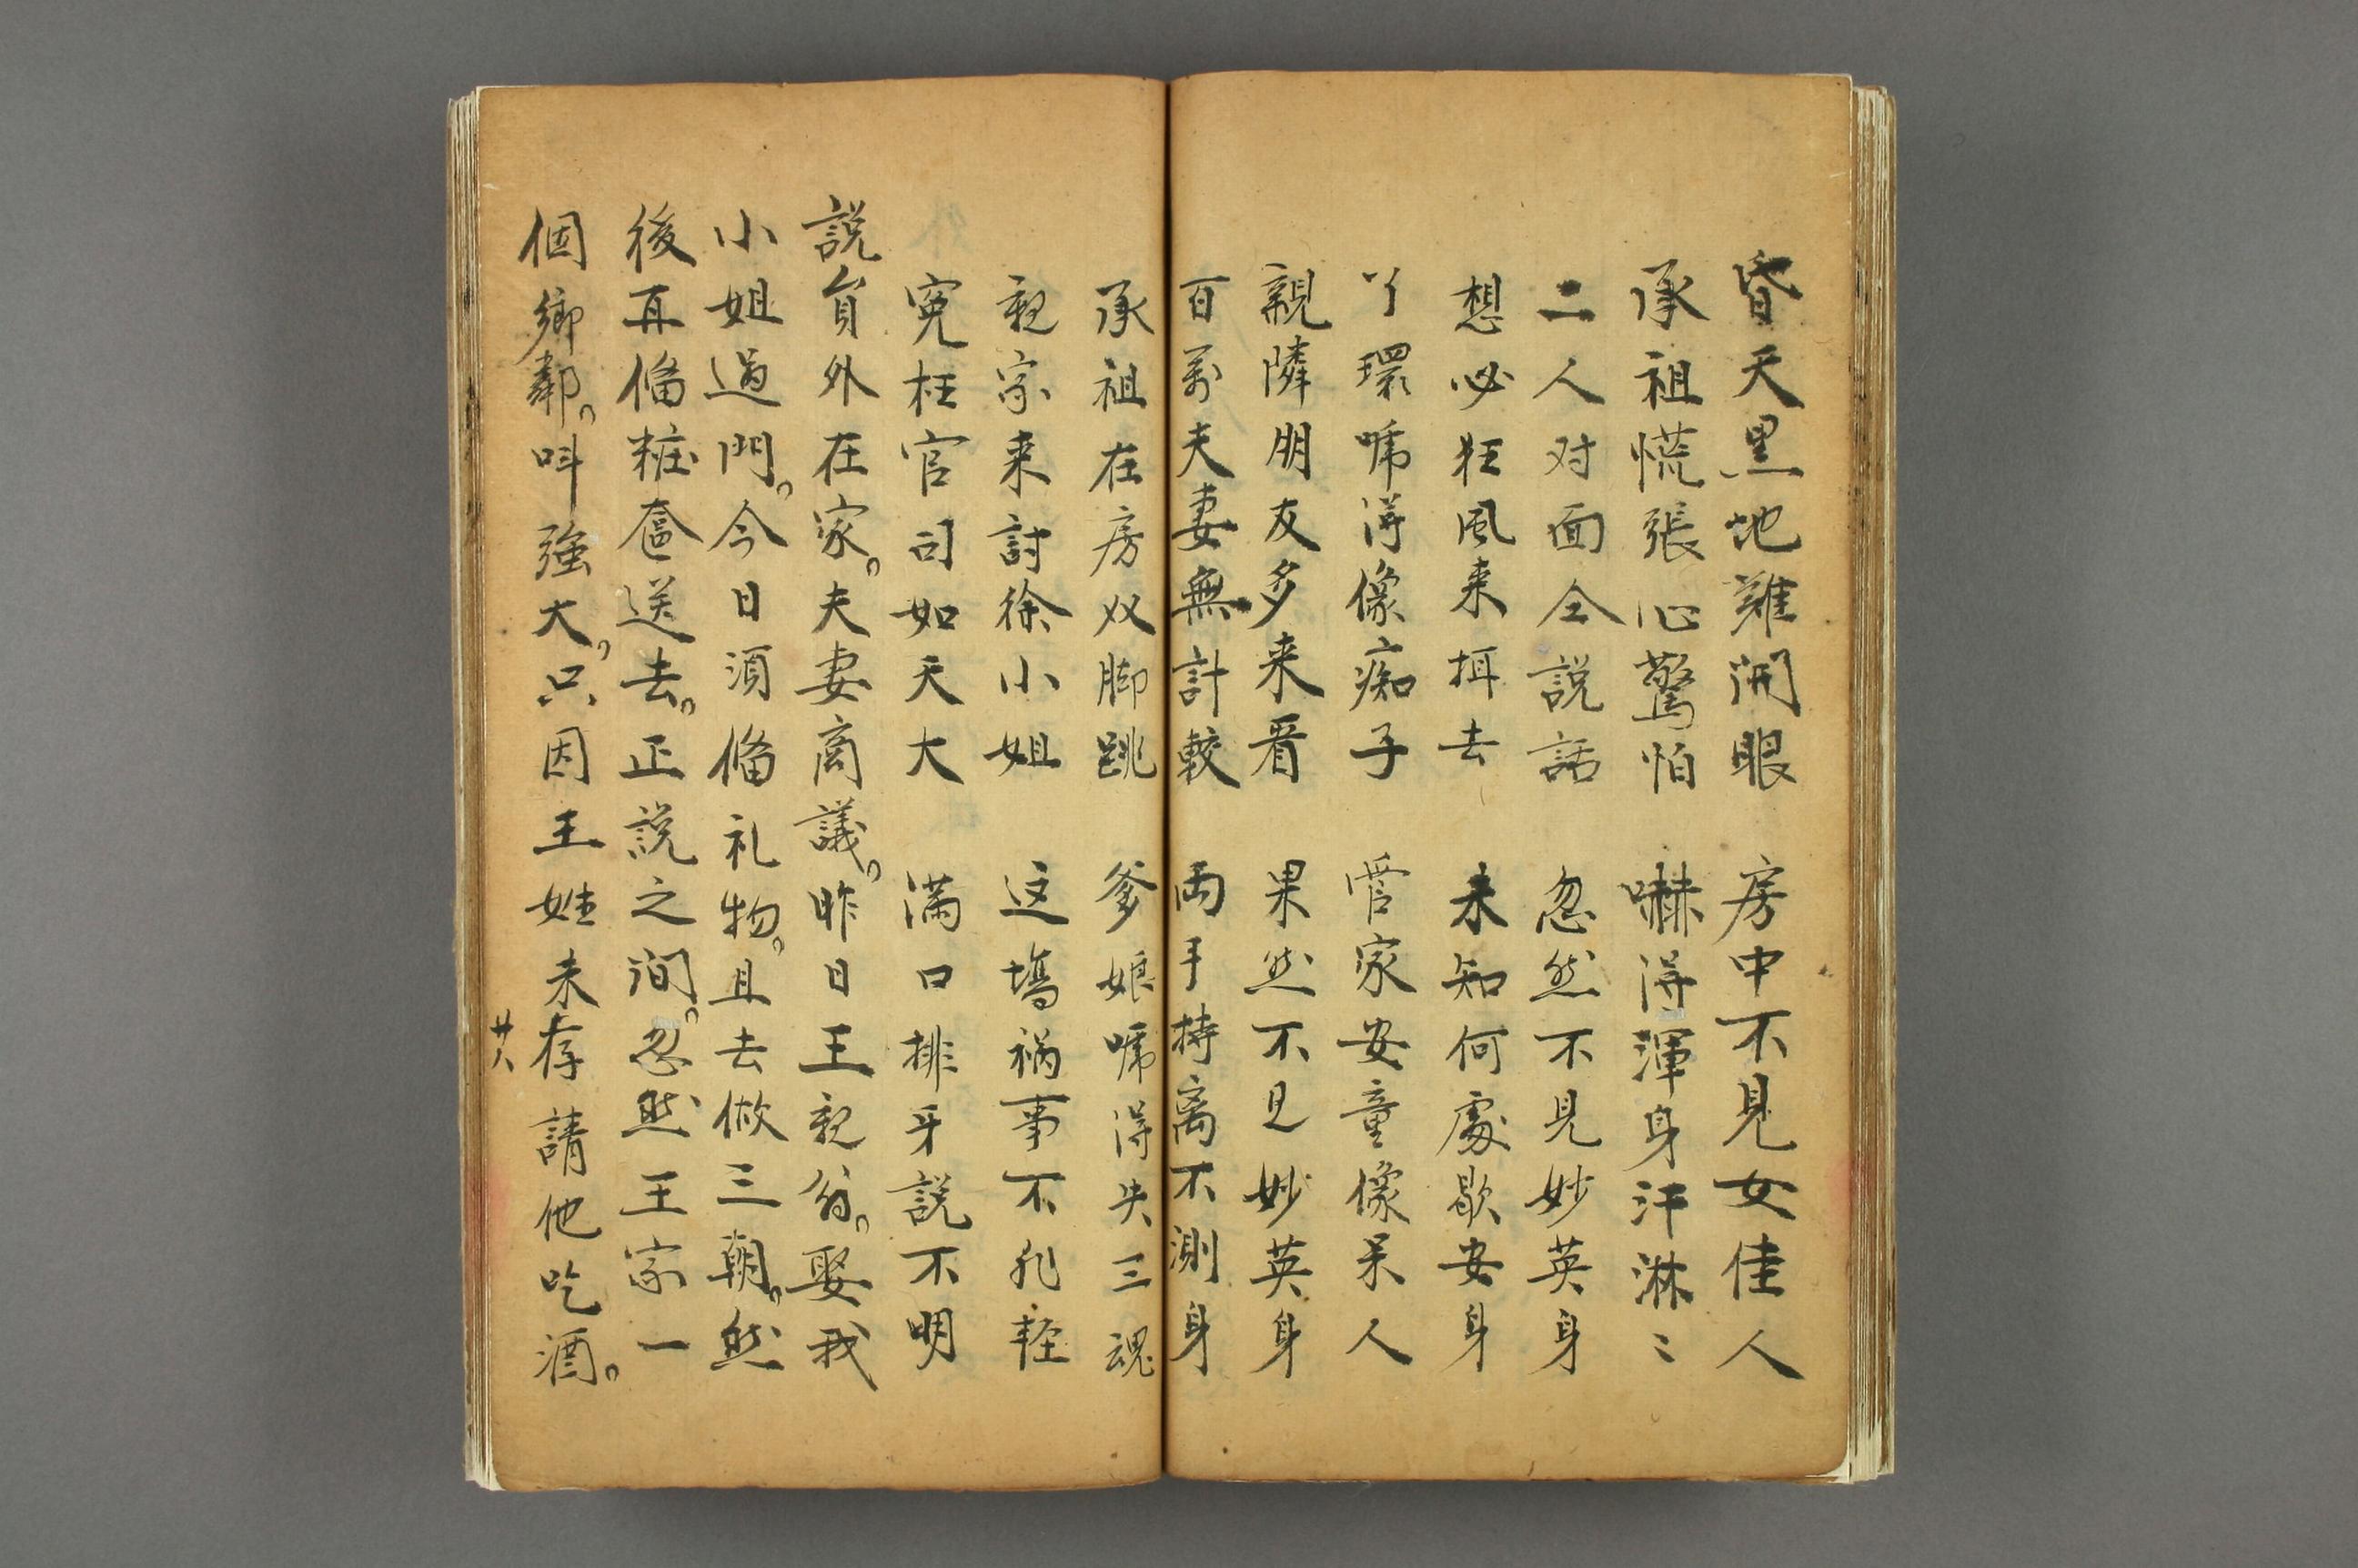 昏天黑地難開眼　房中不見女佳人
承祖慌張心驚怕　嚇得渾身汗淋〻
二人对面仝説話　忽然不見妙英身
想必狂風来抇去　未知何處歇安身
丫環唬得像痴子　管家安童像呆人
親隣朋友多来看　果然不見妙英身
百萬夫妻無計較　両手持离不測身
承祖在房双脚跳　爹娘唬得失三魂
親宗来討徐小姐　这塲禍事不非輕
寃枉官司如天大　満口排牙説不明
説員外在家。夫妻商議。昨日王親翁。娶我
小姐過門。今日須俻礼物。且去做三朝。然
後再俻粧奩送去。正説之间。忽然王家一
個鄉鄰。叫強大。只因王姓未存請他吃酒。
廿八